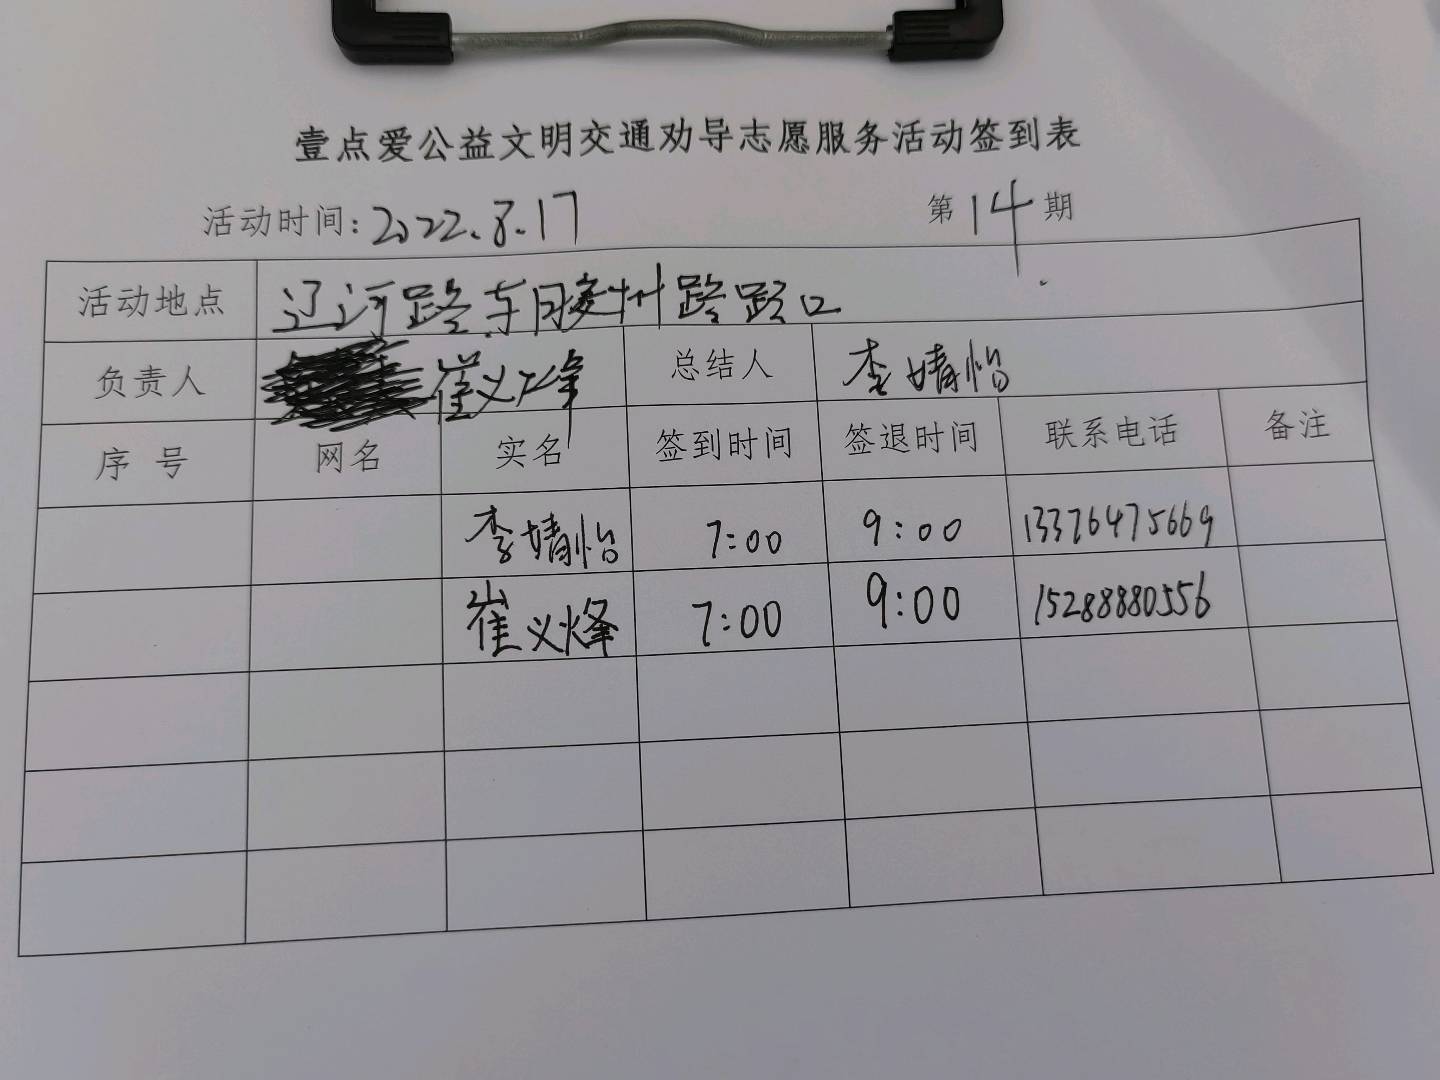 壹点爱公益文明交通劝导志愿服务活动签到表
活动时间: 2022.8.17 第 14 期
活动地点 辽河路东胶州路路口
负责人 崔义烽 总结人 李婧怡
序号 网名 实名 签到时间 签退时间 联系电话 备注
李婧怡 7:00 9:00 13376475669
崔义烽 7:00 9:00 15288880556